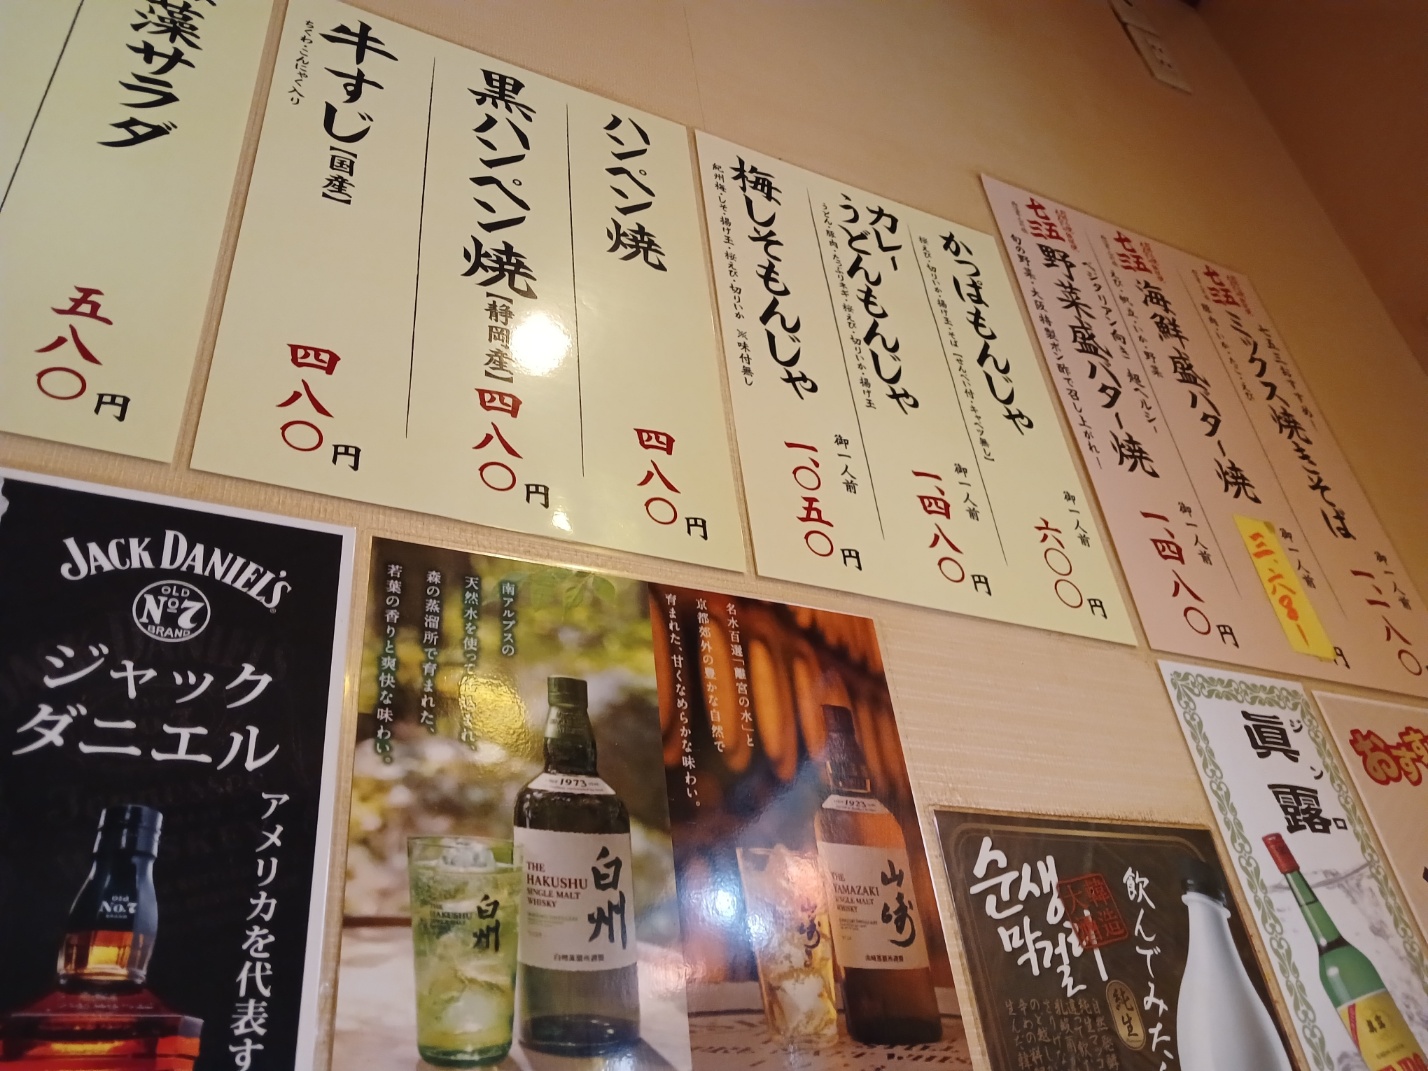 藻サラダ
五八〇円
牛すじ【国産】
ちくわ・こんにゃく入り
四八〇円
黒ハンペン焼【静岡産】
四八〇円
ハンペン焼
四八〇円
梅しそもんじゃ
紀州梅・しそ・揚げ玉・桜えび・切りいか ※味付無し
御一人前
一、〇五〇円
カレー
うどんもんじゃ
うどん・豚肉・たっぷりネギ・桜えび・切りいか・揚げ玉
御一人前
一、四八〇円
かっぱもんじゃ
桜えび・切りいか・揚げ玉・そば【せんべい付・キャベツ無し】
御一人前
六〇〇円
七五三
野菜盛バター焼
ベジタリアン向き 超ヘルシー
旬の野菜・大阪特製ポン酢で召し上がれ!
御一人前
一、四八〇円
七五三
海鮮盛バター焼
えび・帆立・いか・野菜
御一人前
円
七五三
ミックス焼きそば
七五三おすすめ!
御一人前
一、一八〇
JACK DANIEL'S
OLD
No.7
BRAND
ジャック
ダニエル
アメリカを代表す
南アルプスの
天然水を使って
森の蒸溜所で育まれた、
若葉の香りと爽快な味わい。
1973
THE
HAKUSHU
SINGLE MALT
WHISKY
白州
白州
名水百選「離宮の水」と
京都郊外の豊かな自然で
育まれた、甘くなめらかな味わい。
1923
THE
YAMAZAKI
SINGLE MALT
WHISKY
山崎
山崎
순생
막걸리
飲んでみた
純生
眞露
ジンロ
おす